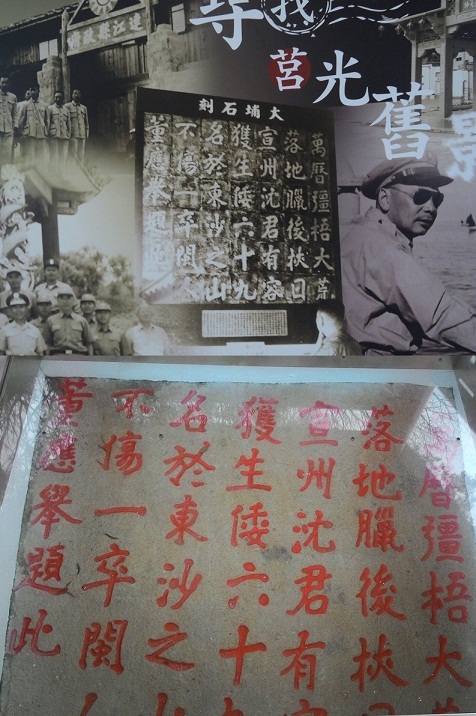 尋找
莒光
舊影
連江縣政府
大埔石刻
萬曆彊梧大荒
落地臘後挾日
宣州沈君有容
獲生倭六十九
名於東沙之山
不傷一卒閩人
董應舉題此
萬曆彊梧大
落地臘後挾日
宣州沈君有容
獲生倭六十
名於東沙之
不傷一卒閩人
董應舉題此